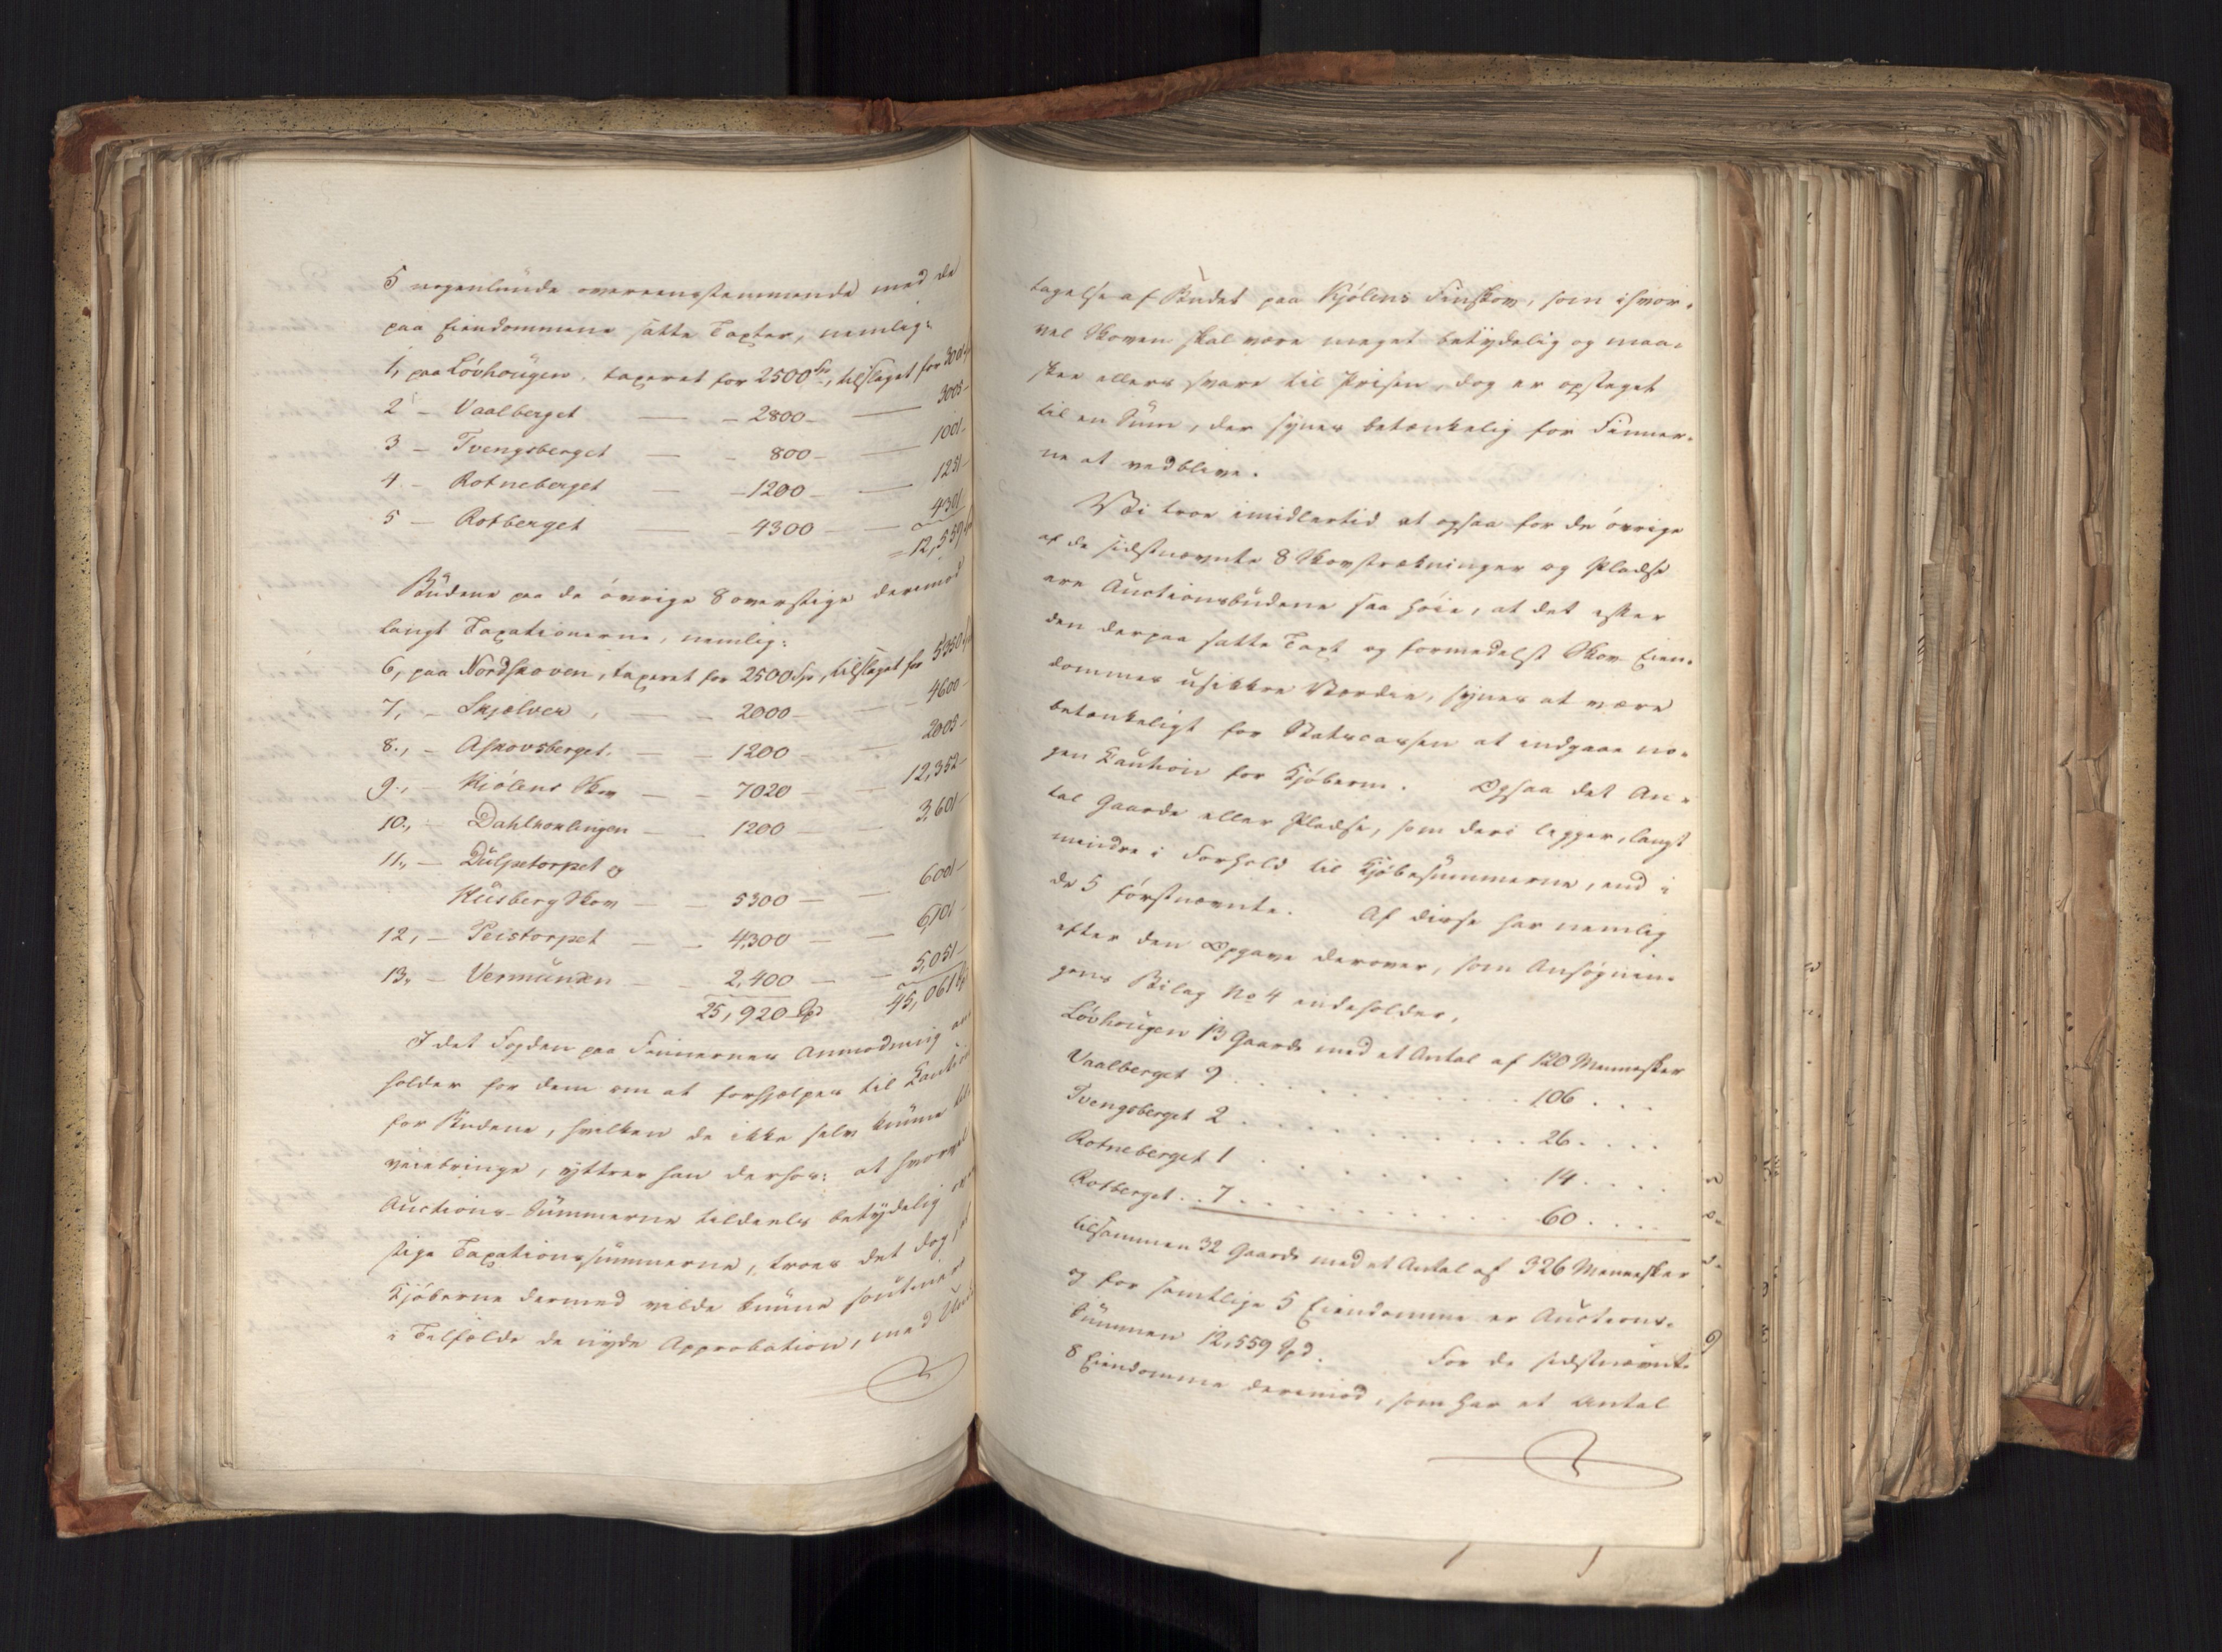 5 nogenlunde overeensstemmende med de
paa Eiendommene satte Taxter, nemlig:
1, paa Lövhougen, taxeret for 2500 Spd, tilslaget for 3001
2 – Vaalberget — – 2800 – — 3005 –
3 – Tvengsberget — – 800 – — 1001 –
4 – Rotneberget — – 1200 – — 1231 –
5 – Rotberget — – 4300 – — 4301
= 12,539
Budene paa de övrige 8 overstige derimod
langt Taxationerne, nemlig:
6, paa Nordskoven, taxeret for 2500 Spd, tilslaget for 5350
7, – Skjælver, — – 2000 – – 4600 –
8., – Askovsberget. — – 1200 — 2005 –
9., – Kiölens Skov — – 7020 – – 12,352 –
10., – Dahlkonlingen — – 1200 – — 3,601 –
11., – Dulpetorpet og
Husberg Skov — – 5300 — — 6001 –
12, – Peistorpet — – 4,300 — – 6,101 –
13, – Vermunden – – 2,400 — – 5,051 –
25,920 Spd 45,061 Spd
I det Fogden paa Finnernes Anmodning an
holder for dem om at forhjælpes til Kaution
for Budene, hvilken de ikke selv kunne til
veiebringe, yttrer han derhos: at hvorvel
Auctions-Summerne tildeels betydelig over
stige Taxationssummerne, troer det dog, at
Kjöberne dermed vilde kunne soutinere
i Tilfælde de nyde Approbation, med Und
tagelse af Budet paa Kjölens Finskov, som ihvor-
vel Skoven skal være meget betydelig og maa-
skee ellers svare til Prisen, dog er opstaget
til en Sum, der synes betænkelig for Finner-
ne at vedblive.
Vi troe imidlertid at ogsaa for de övrige
af de sidstnævnte 8 Skovstrækninger og Pladse
ere Auctionsbudene saa höie, at det efter
den derpaa satte Taxt og formedelst Skov-Eien-
dommes usikkre Værdie, synes at være
betænkeligt for Statscassen at indgaae no-
gen Kaution for Kjöberne. Ogsaa det An-
tal Gaarde eller Pladse, som deri ligger, langt
mindre i Forhold til Kjöbesummerne, end i
de 5 förstnævnte. Af disse har nemlig
efter den Opgave derover, som Ansögnin-
gens Bilag No 4 indeholder,
Lövhougen 13 Gaarde med et Antal af 120 Mennesker
Vaalberget 9 . . . . . . . . . . . 106 . . .
Tvengsberget 2 . . . . . . . . . . . 26 . . . .
Rotneberget 1 . . . . . . . . . . 14 . . . .
Rotberget . . 7 . . . . . . . . . . 60 . . . .
tilsammen 32 Gaarde med et Antal af 326 Mennesker
og for samtlige 5 Eiendomme er Auctions-
summen 12,559 Spd. For de sidstnævnte
8 Eiendomme derimod, som har et Antal